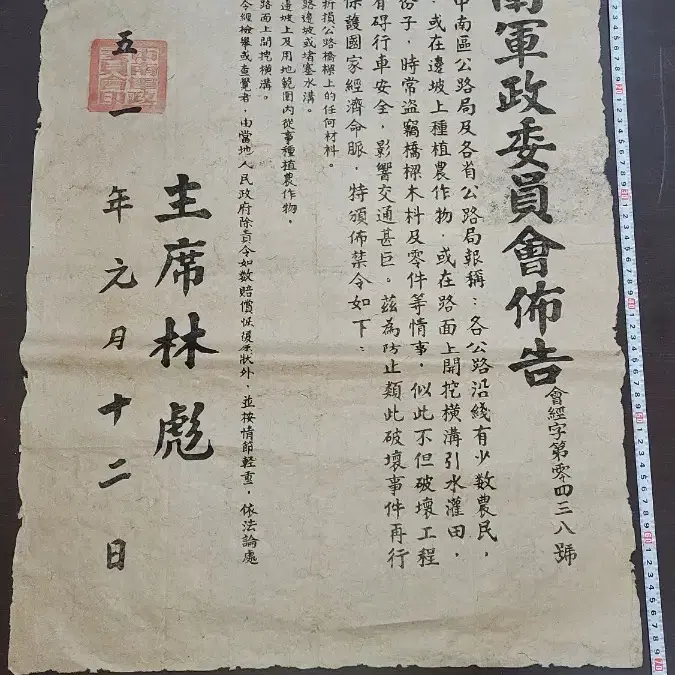 南軍政委員會佈告
會經字第零四三八號
中南區公路局及各省公路局報稱：各公路沿綫有少数農民，
或在邊坡上種植農作物，或在路面上開挖横溝引水灌田，
份子，時常盗竊橋樑木料及零件等情事，似此不但破壞工程
有碍行車安全，影響交通甚巨。茲為防止類此破壞事件再行
保護國家經濟命脈，特頒佈禁令如下：
折損公路橋樑上的任何材料。
路邊坡或堵塞水溝。
邊坡上及用地範圍内從事種植農作物。
路面上開挖横溝。
令經檢舉或查覺者，由當地人民政府除責令如数賠償恢復原狀外，並按情節輕重，依法論處
主席林彪
五一年元月十二日